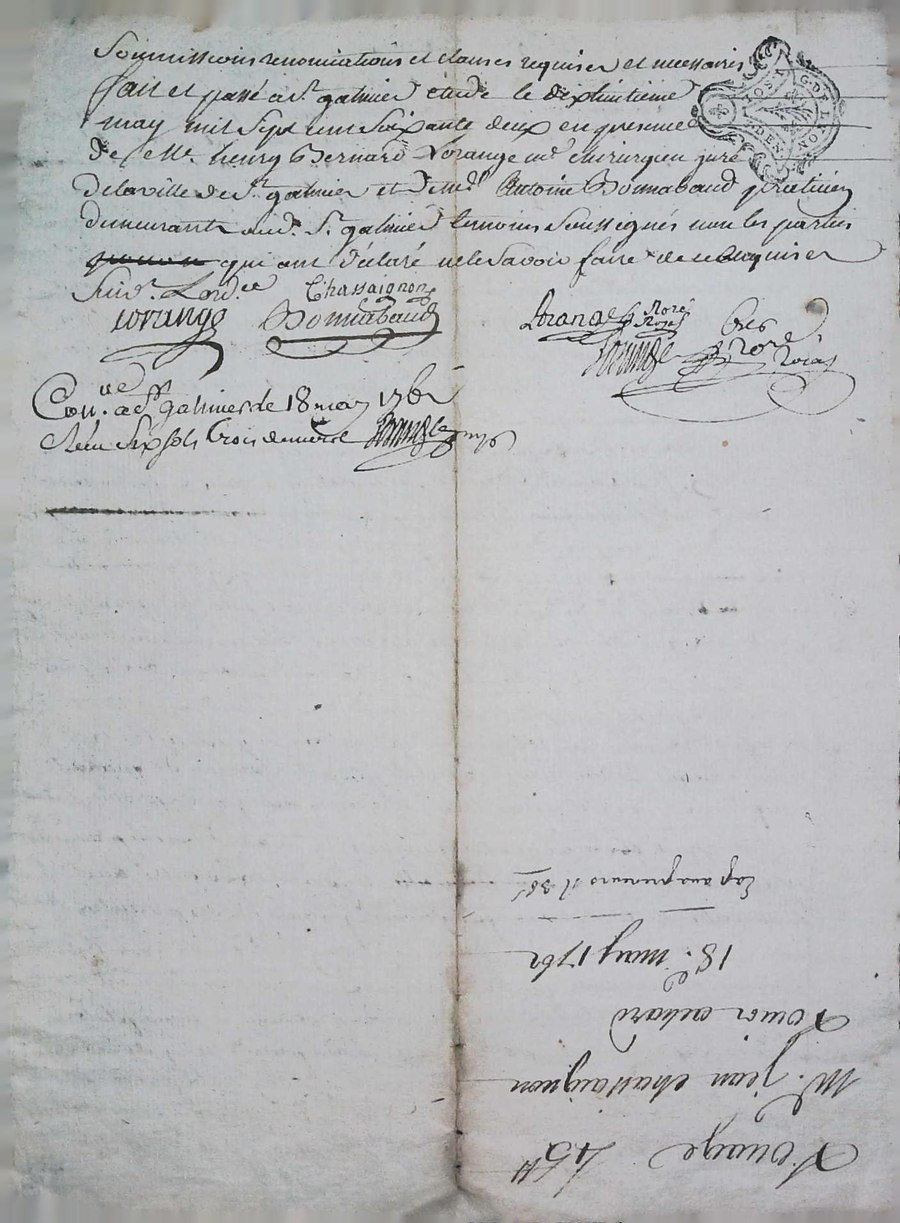 Soumissions renonciations et clauses requises et necessaires
fait et passé a St. galmier étude le dixhuitieme
may mil sept cent soixante deux en presence
de Me. henry Bernard Lorange me. chirurgien juré
de la ville de St. galmier et de Me. Antoine Bonnabaud praticien
demeurants aud. St. galmier temoins soussignés non les parties
qui ont déclaré ne le savoir faire de ce requises
Chassaignon
Lorange Bonnabaud
Lorange Noré Royal
Con.ue a St galmier le 18 may 1762
Reçu six sols trois deniers
G. DE LYON
Louage 45tt
Me. jean chassaignon
18e. may 1762